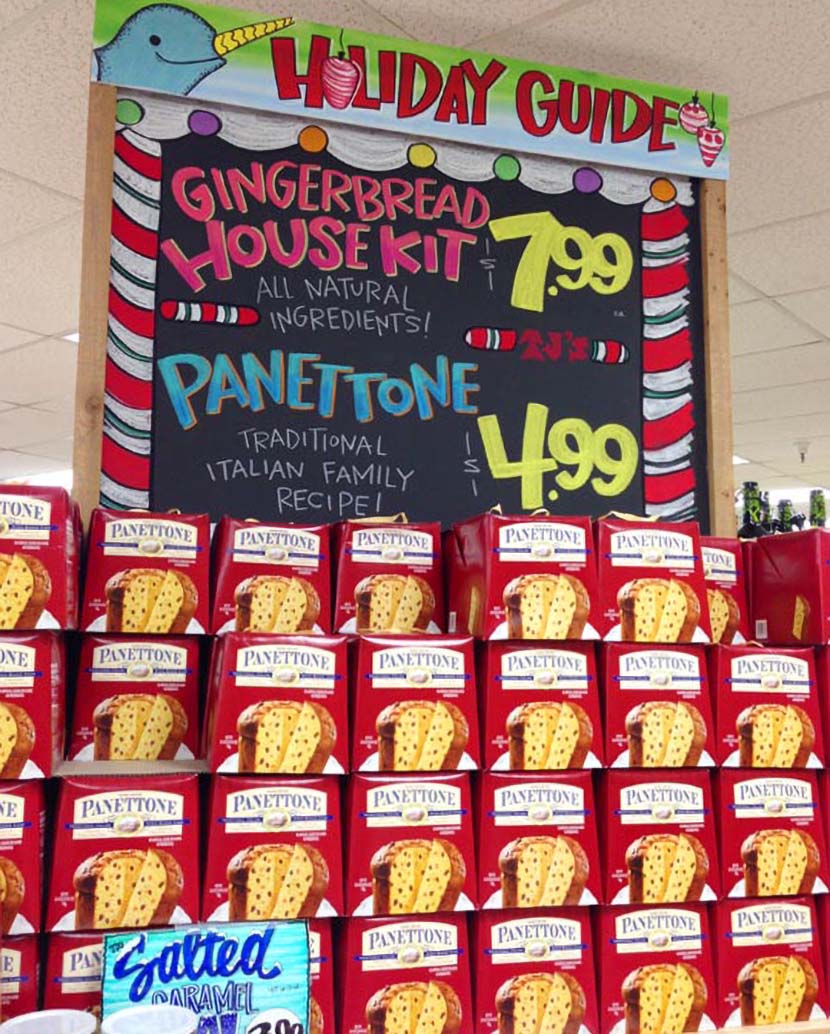 HOLIDAY GUIDE
GINGERBREAD
HOUSE KIT
IS
7.99
EA.
ALL NATURAL
INGREDIENTS!
TJ'S
PANETTONE
IS
4.99
TRADITIONAL
ITALIAN FAMILY
RECIPE!
TONE
PANETTONE
PANETTONE
PANETTONE
PANETTONE
PANETTONE
TONE
ONE
PANETTONE
PANETTONE
PANETTONE
PANETTONE
PANETTONE
PANETTONE
NE
PANETTONE
PANETTONE
PANETTONE
PANETTONE
PANETTONE
PANETTONE
E
PAN
PANETTONE
PANETTONE
PANETTONE
PANETTONE
Salted
CARAMEL